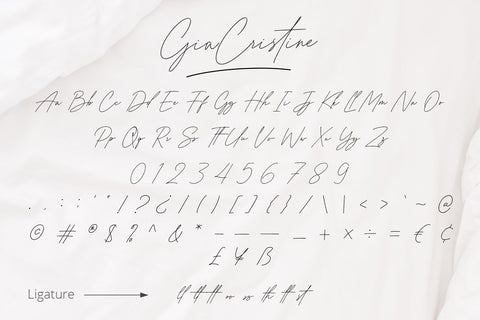 GiaCristine
Aa Bb Cc Dd Ee Ff Gg Hh Ii Jj Kk Ll Mm Nn Oo
Pp Qq Rr Ss Tt Uu Vv Ww Xx Yy Zz
0 1 2 3 4 5 6 7 8 9
. , : ; ' " ! ? ¿ ¡ ( ) [ ] { } / \ | < > ` ~ @
© # ® $ % ^ & * - – — _ + × ÷ = € ¢
£ ¥ ß
Ligature ll tt ff or os th tt st